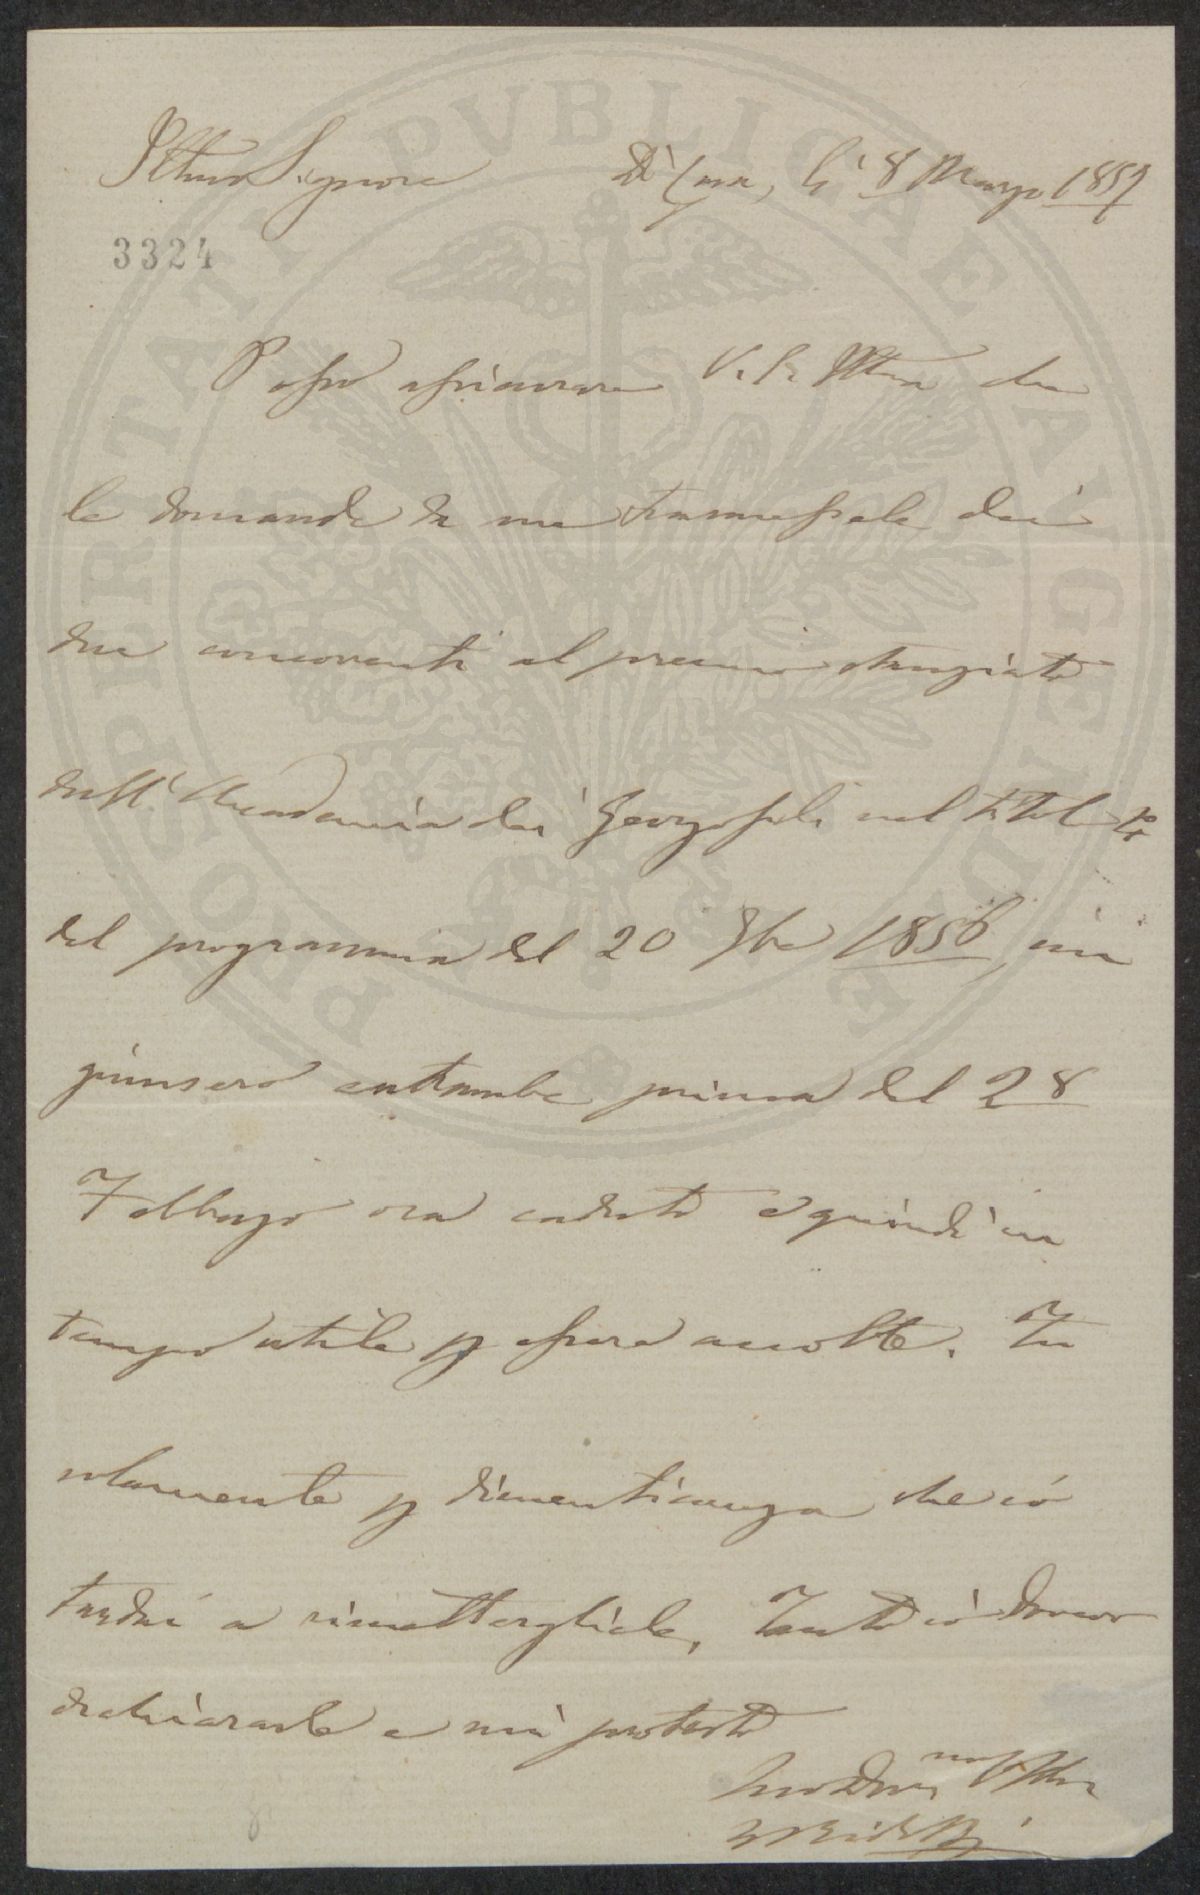 Illmo Signore Di Casa, li 8 Marzo 1857
3324
Posso assicurare V. S. Illma che
le domande da me trasmessele dei
due concorrenti al premio
dall' Accademia dei Georgofili nel titolo
del programma del 20 1856 mi
giunsero entrambe prima del 28
Febbrajo ora caduto e quindi in
tempo utile p essere accolte. Fu
solamente p dimenticanza che io
tardai a rimettergliele. Tanto io devo
dichiararle e mi protesto
PROSPERITATI PVBLICAE AVGENDAE